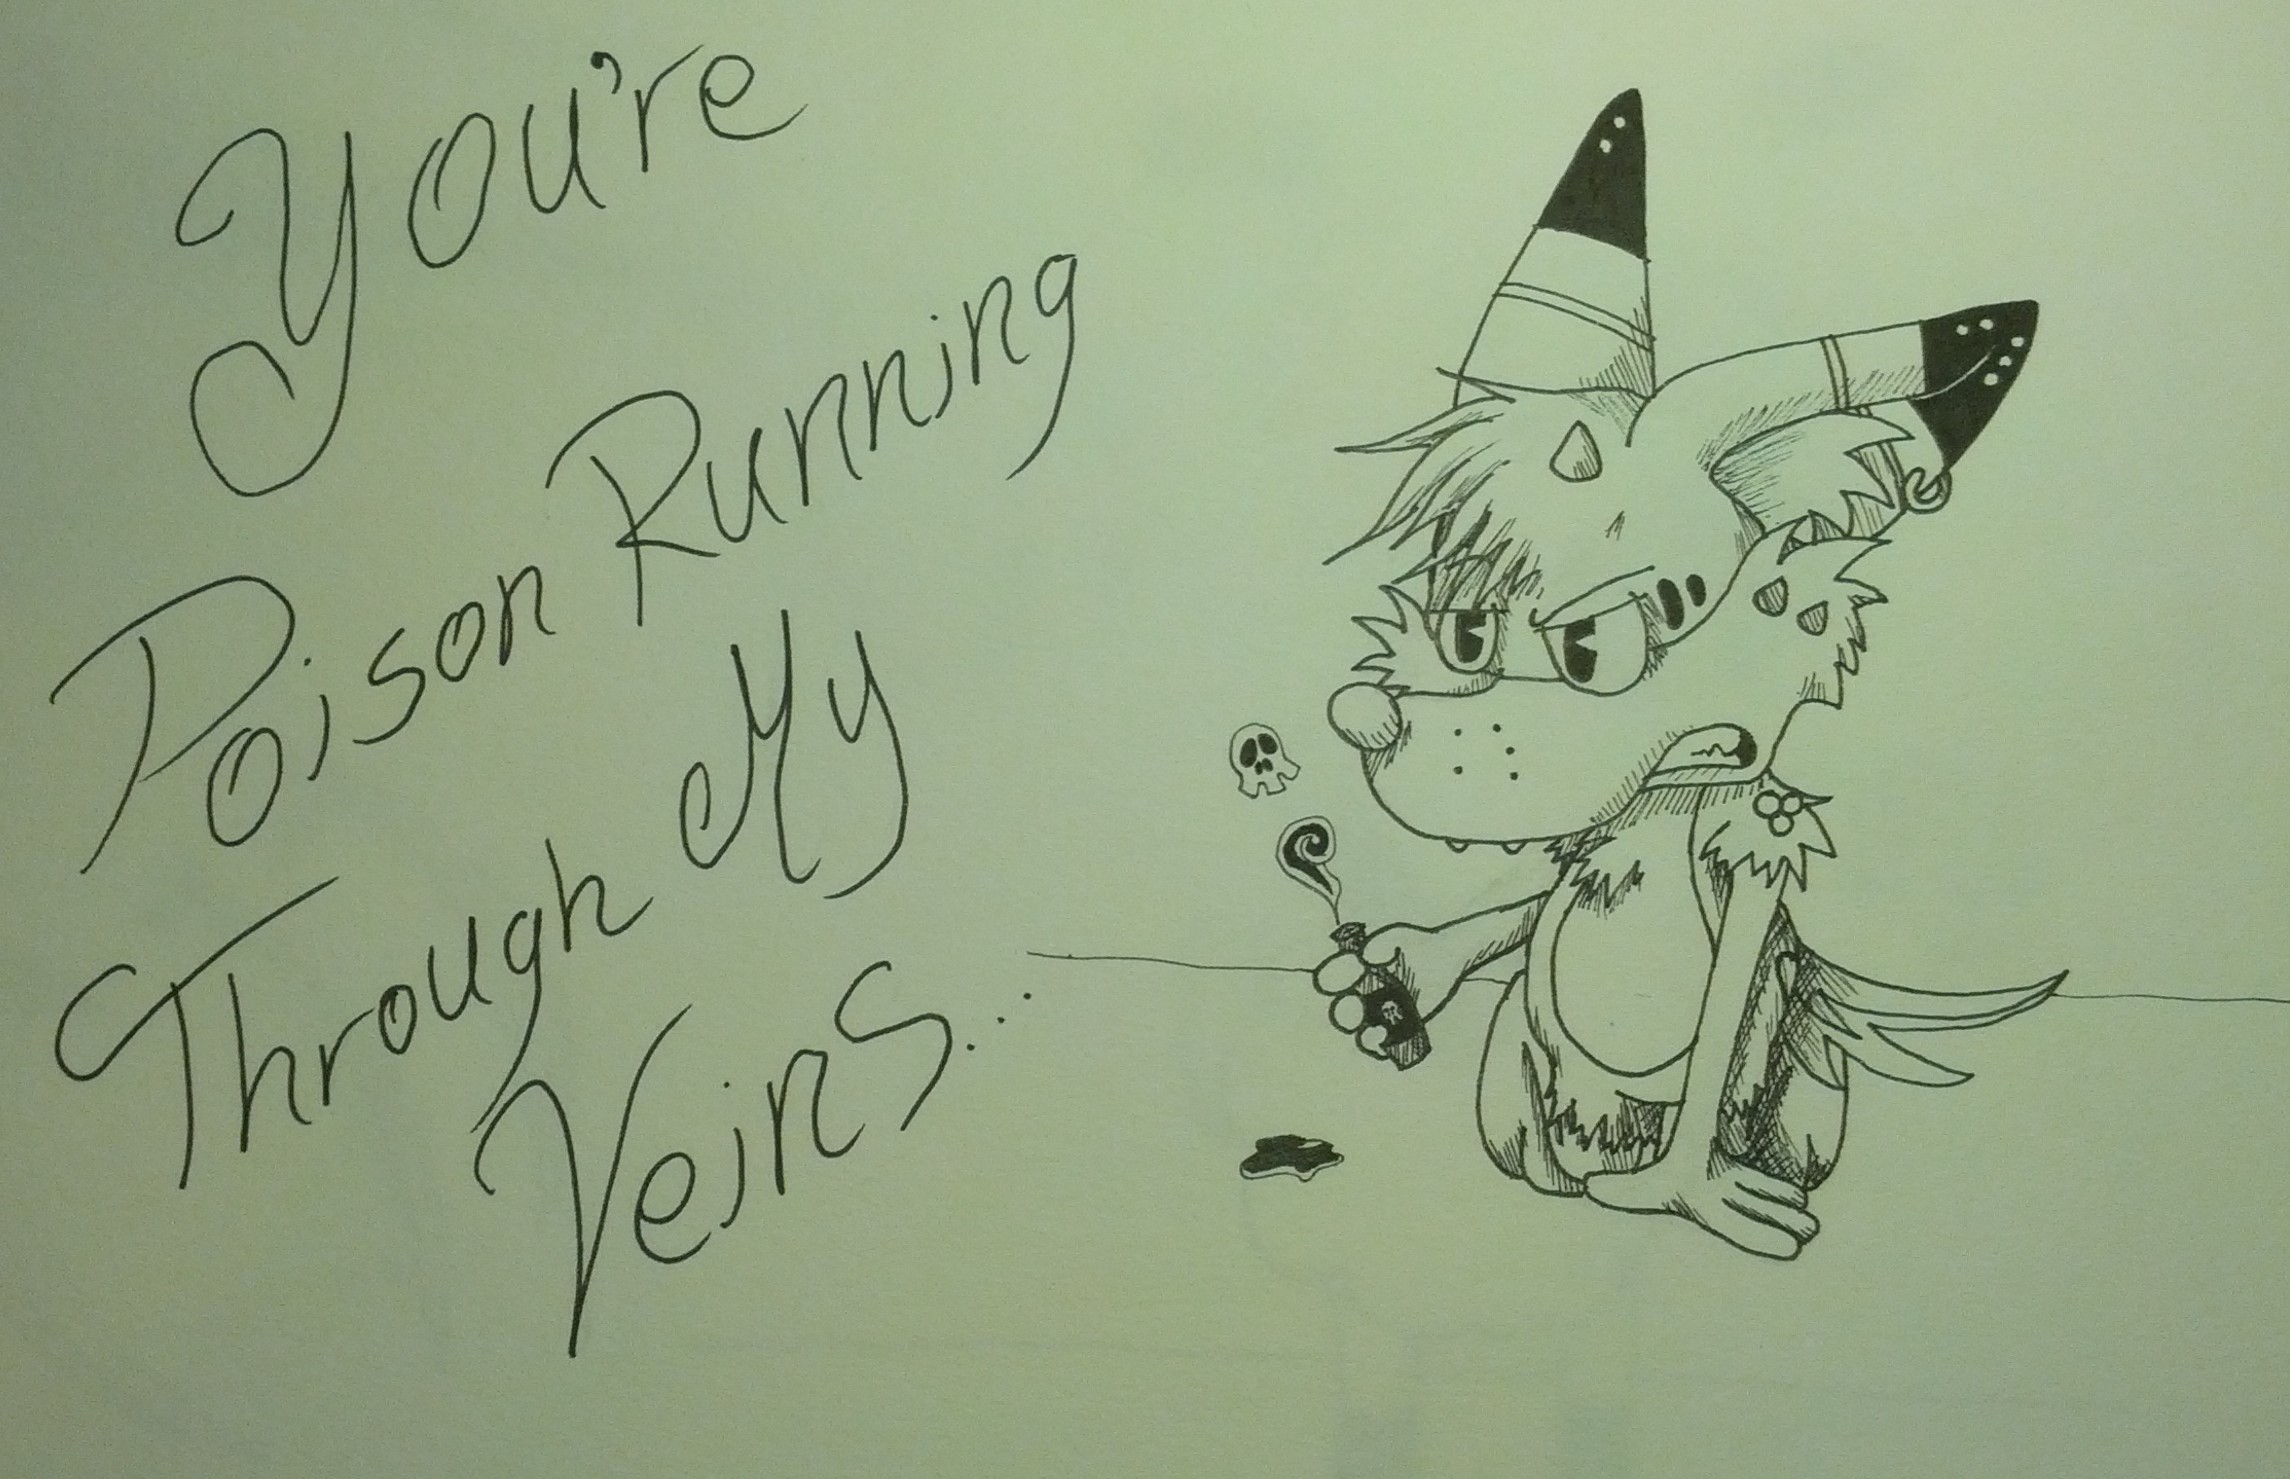 You're
Poison Running
Through My
Veins...